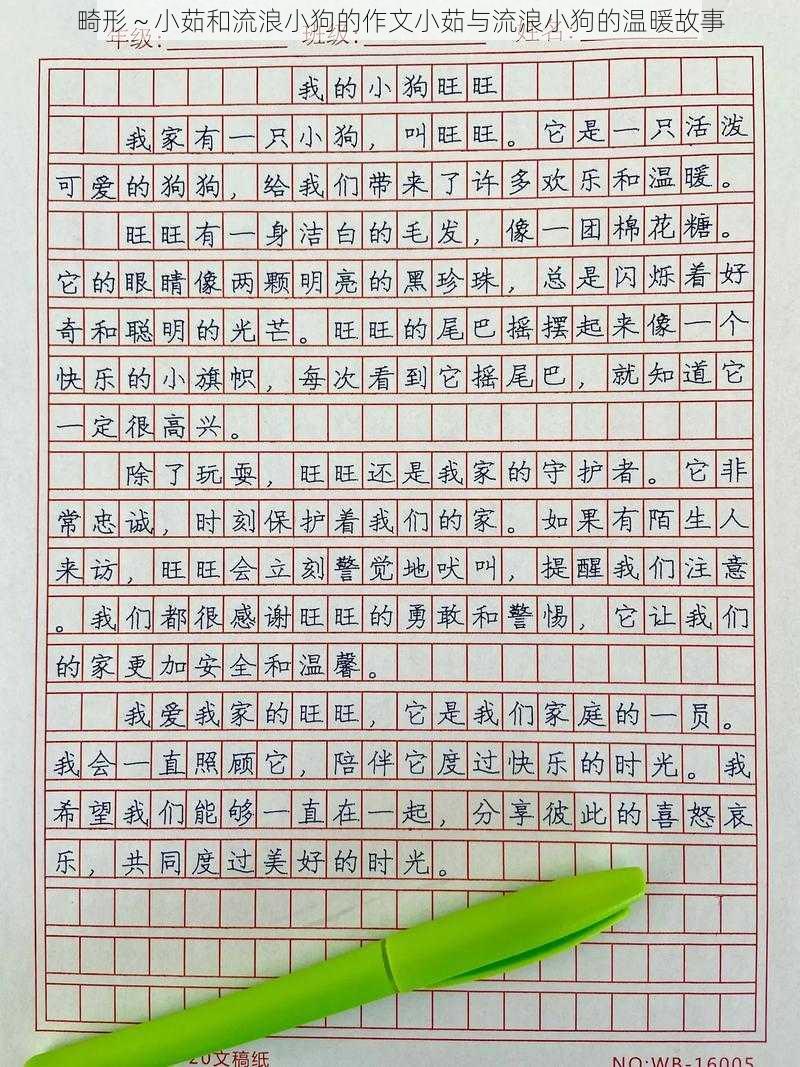 畸形~小茹和流浪小狗的作文小茹与流浪小狗的温暖故事
年级: 班级: 姓名:
我的小狗旺旺
我家有一只小狗，叫旺旺。它是一只活泼
可爱的狗狗，给我们带来了许多欢乐和温暖。
旺旺有一身洁白的毛发，像一团棉花糖。
它的眼睛像两颗明亮的黑珍珠，总是闪烁着好
奇和聪明的光芒。旺旺的尾巴摇摆起来像一个
快乐的小旗帜，每次看到它摇尾巴，就知道它
一定很高兴。
除了玩耍，旺旺还是我家的守护者。它非
常忠诚，时刻保护着我们的家。如果有陌生人
来访，旺旺会立刻警觉地吠叫，提醒我们注意
。我们都很感谢旺旺的勇敢和警惕，它让我们
的家更加安全和温馨。
我爱我家的旺旺，它是我们家庭的一员。
我会一直照顾它，陪伴它度过快乐的时光。我
希望我们能够一直在一起，分享彼此的喜怒哀
乐，共同度过美好的时光。
20文稿纸 NO:WB-16005